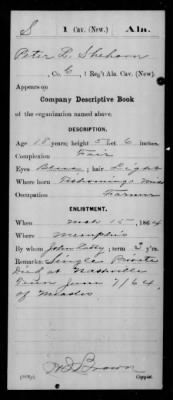 S 1 Cav. (New.) Ala.
Peter L. Shehorn
, Co. C, 1 Reg't Ala. Cav. (New)
Appears on
Company Descriptive Book
of the organization named above.
DESCRIPTION.
Age 18 years; height 5 feet 6 inches.
Complexion Fair
Eyes Blue; hair Light
Where born Tishomingo Miss
Occupation Farmer
ENLISTMENT.
When Mch 15, 1864
Where Memphis
By whom John ; term 3 y'rs.
Remarks: Single
Died at Nashville
Tenn June 7/64
of Measles
Brown
Copyist.